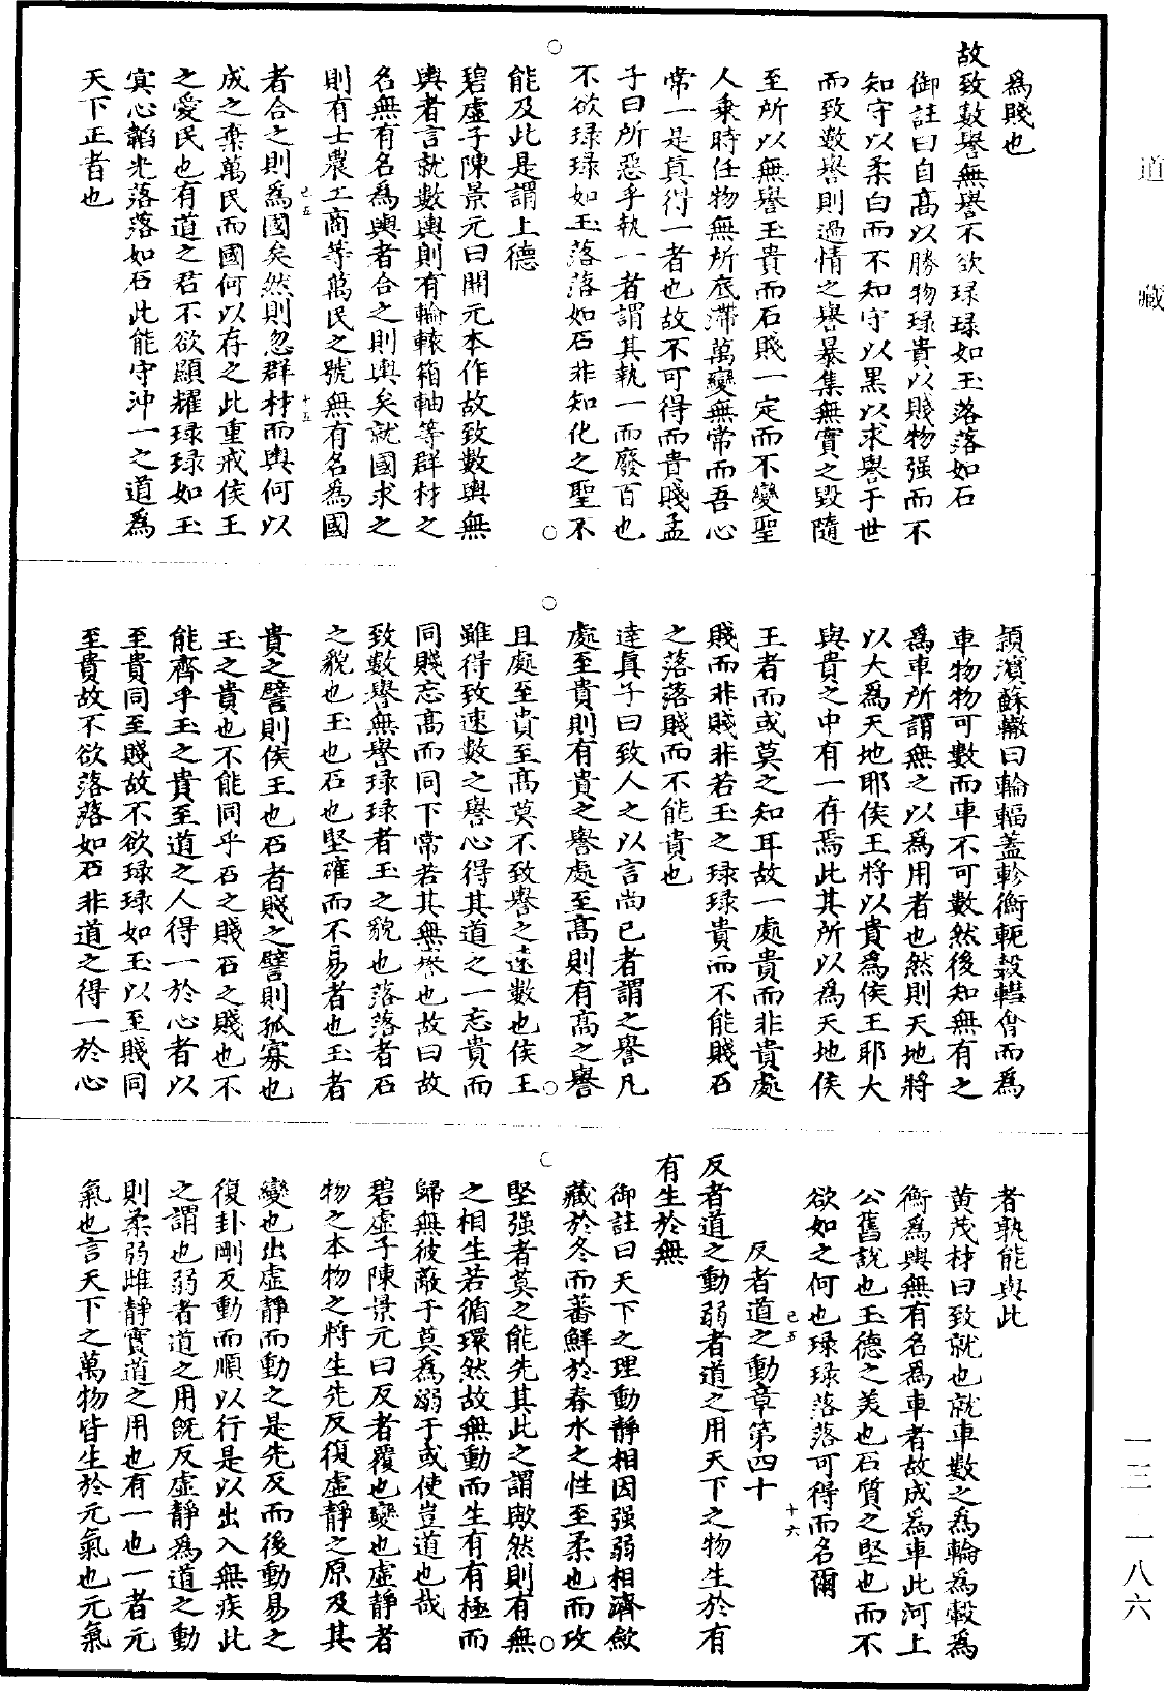 道藏
爲賤也
故致數譽無譽不欲琭琭如玉落落如石
御註曰自高以勝物琭貴以賤物强而不
知守以柔白而不知守以黑以求譽于世
而致數譽則過情之譽暴集無實之毀隨
至所以無譽玉貴而石賤一定而不變聖
人乗時任物無所底滯萬變無常而吾心
常一是真得一者也故不可得而貴賤孟
子曰所惡乎執一者謂其執一而廢百也
不欲琭琭如玉落落如石非知化之聖不
能及此是謂上德
碧虛子陳景元曰開元本作故致數輿無
輿者言就數輿則有輪轅箱軸等群材之
名無有名爲輿者合之則輿矣就國求之
則有士農工商等萬民之號無有名爲國
己五 十五
者合之則爲國矣然則忽群材而輿何以
成之棄萬民而國何以存之此重戒侯王
之愛民也有道之君不欲顯耀琭琭如玉
寘心韜光落落如石此能守沖一之道爲
天下正者也
潁濱蘇轍曰輪輻蓋軫衡軛轂轊會而爲
車物物可數而車不可數然後知無有之
爲車所謂無之以爲用者也然則天地將
以大爲天地耶侯王將以貴爲侯王耶大
與貴之中有一存焉此其所以爲天地侯
王者而或莫之知耳故一處貴而非貴處
賤而非賤非若玉之琭琭貴而不能賤石
之落落賤而不能貴也
達真子曰致人之以言尚已者謂之譽凡
處至貴則有貴之譽處至高則有高之譽
且處至貴至高莫不致譽之速數也侯王
雖得致速數之譽心得其道之一忘貴而
同賤忘高而同下常若其無譽也故曰故
致數譽無譽琭琭者玉之貌也落落者石
之貌也玉也石也堅確而不易者也玉者
貴之譬則侯王也石者賤之譬則孤寡也
玉之貴也不能同乎石之賤石之賤也不
能齊乎玉之貴至道之人得一於心者以
至貴同至賤故不欲琭琭如玉以至賤同
至貴故不欲落落如石非道之得一於心
者孰能與此
黄茂材曰致就也就車數之爲輪爲轂爲
衡爲輿無有名爲車者故成爲車此河上
公舊說也玉德之美也石質之堅也而不
欲如之何也琭琭落落可得而名爾
己五 十六
反者道之動章第四十
反者道之動弱者道之用天下之物生於有
有生於無
御註曰天下之理動靜相因强弱相濟斂
藏於冬而蕃鮮於春水之性至柔也而攻
堅强者莫之能先其此之謂歟然則有無
之相生若循環然故無動而生有有極而
歸無彼蔽于莫爲溺于或使豈道也哉
碧虛子陳景元曰反者覆也變也虛靜者
物之本物之將生先反復虛靜之原及其
變也出虛靜而動之是先反而後動易之
復卦剛反動而順以行是以出入無疾此
之謂也弱者道之用旣反虛靜爲道之動
則柔弱雌靜實道之用也有一也一者元
氣也言天下之萬物皆生於元氣也元氣
一三—一八六